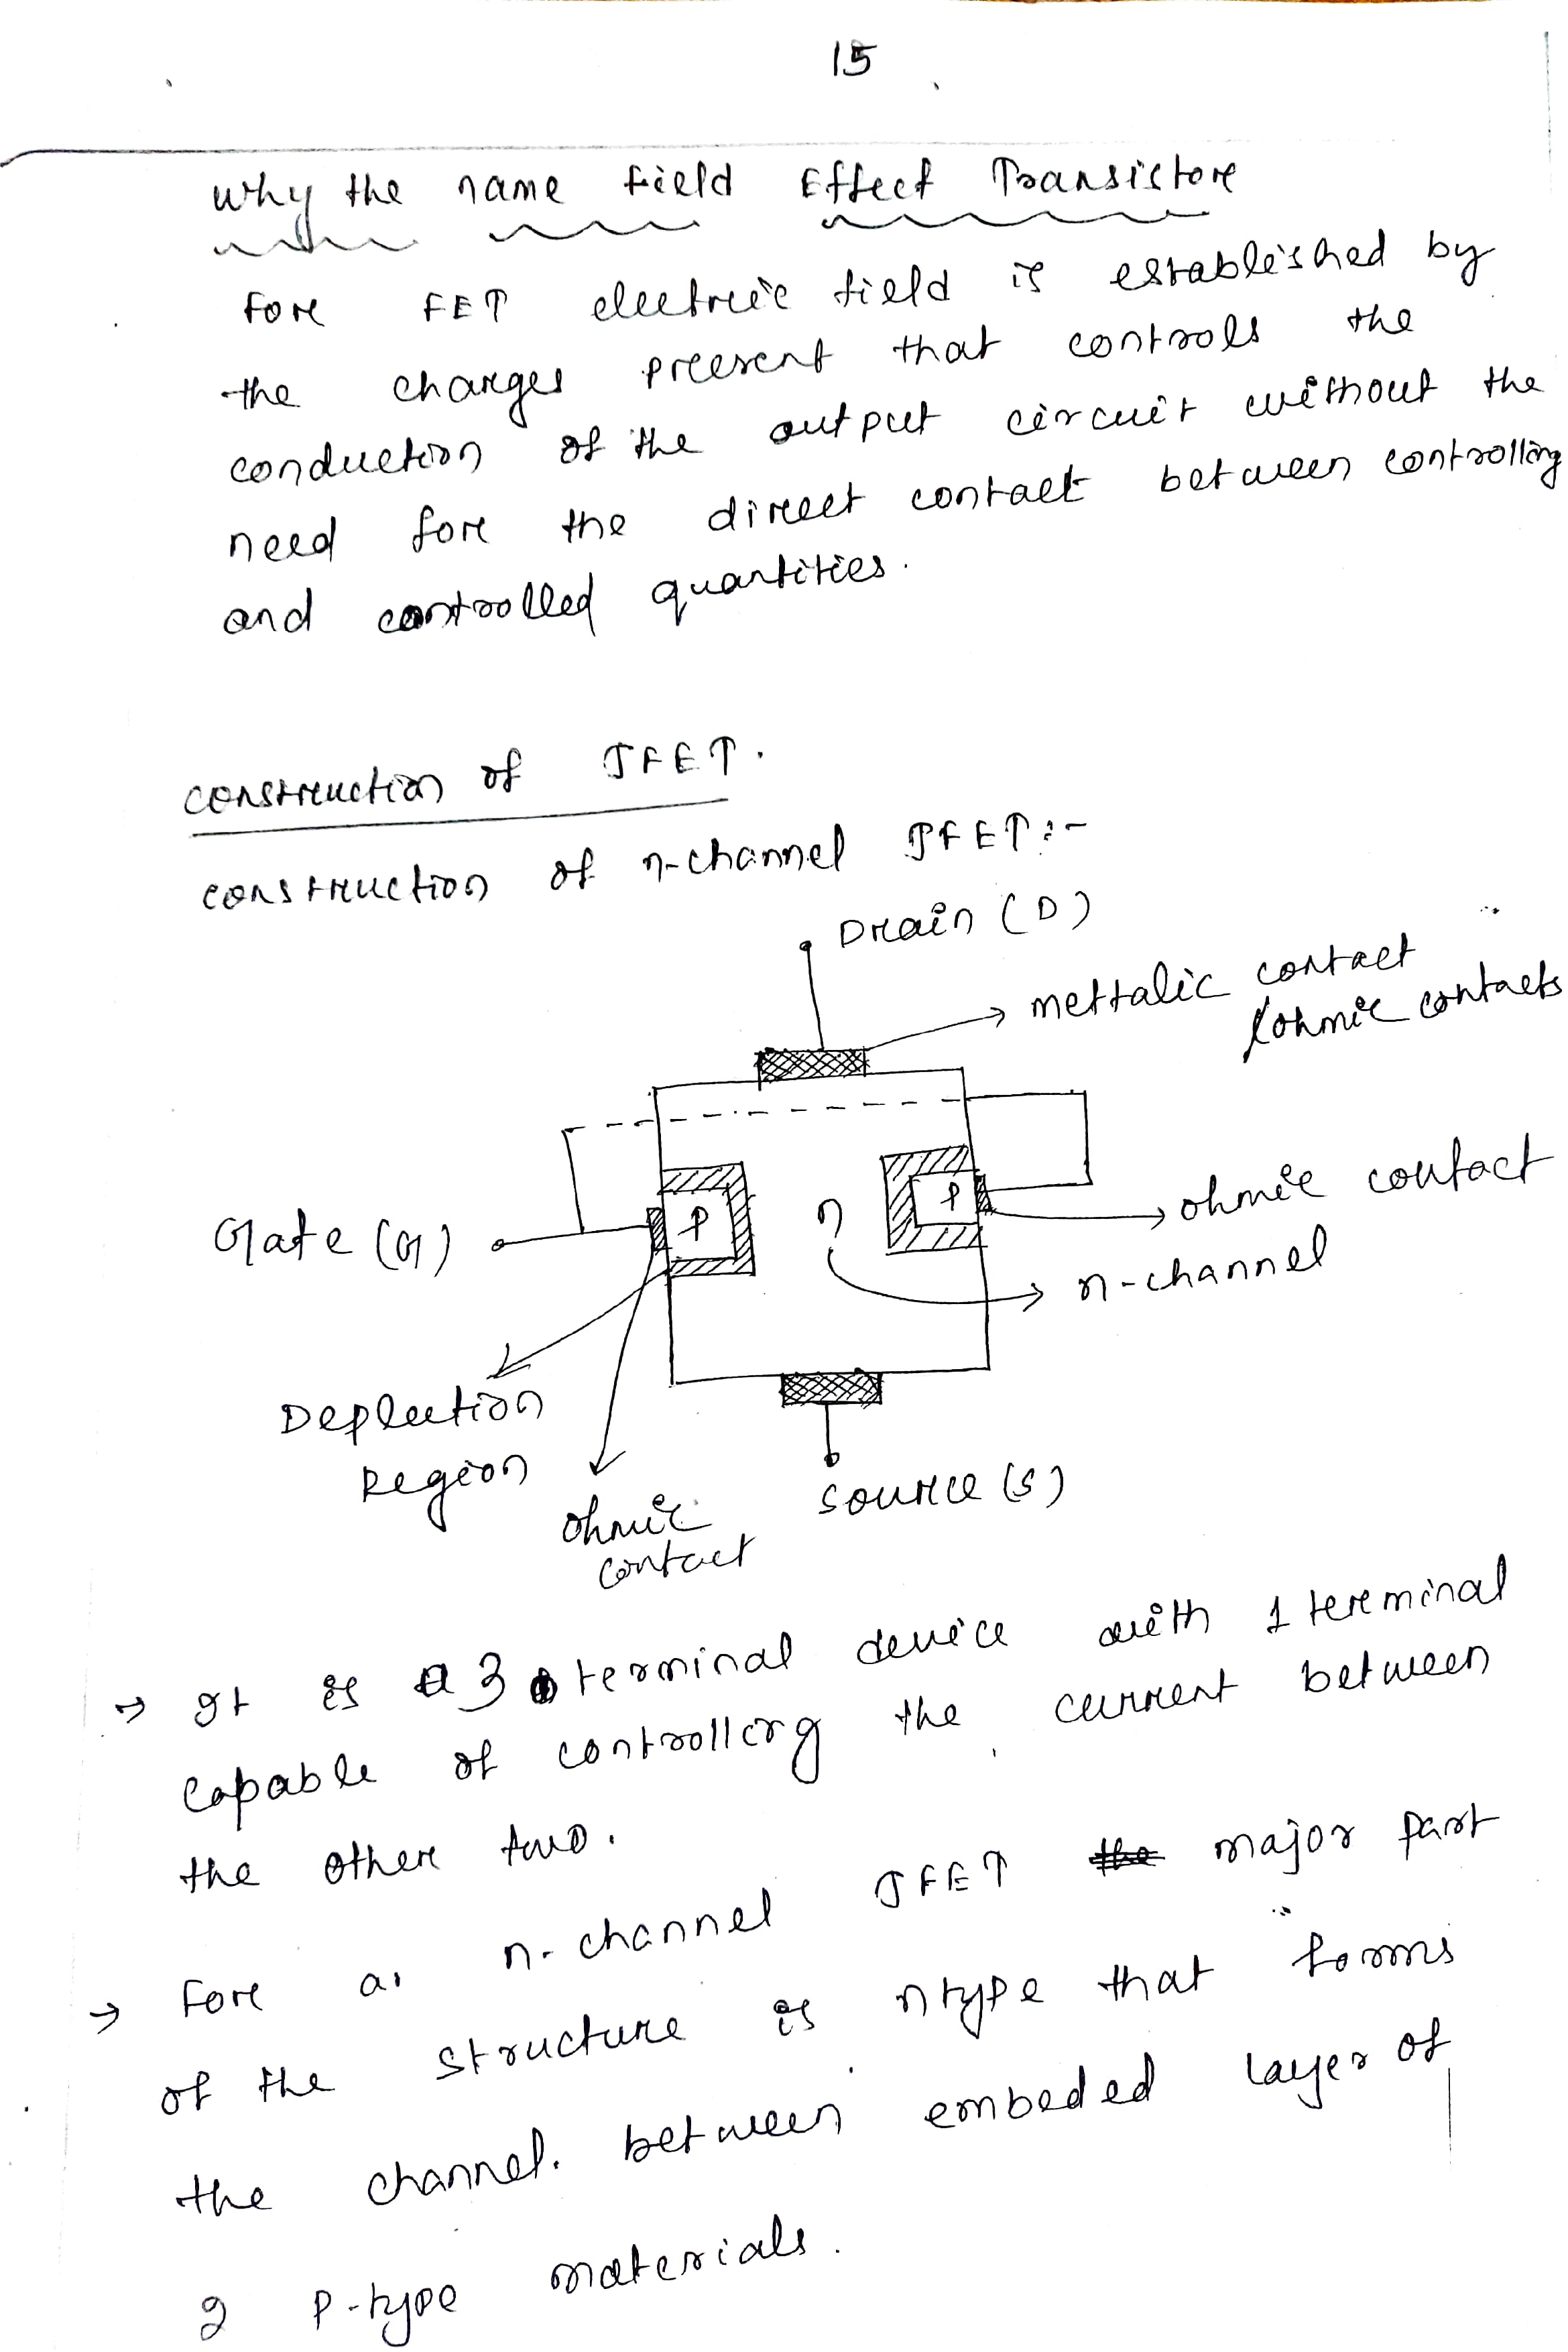 15
Why the name field Effect Transistore
fore FET electreic field is established by
the charges preesent that controls the
conduction of the output circuit without the
need fore the direct contact between controlling
and controlled quantities.
construction of JFET.
construction of n-channel JFET:-
Drain (D)
mettalic contact
/ohmic contacts
P
n
P
ohmic contact
Gate (G)
n-channel
Depleetion
Region
ohmic
contact
source (s)
→ It is a 3 terminal device with 1 tereminal
capable of controlling the current between
the othere two.
→ Fore a n-channel JFET the major part
of the structure is ntype that forms
the channel. between embeded layer of
2 P-type materials.